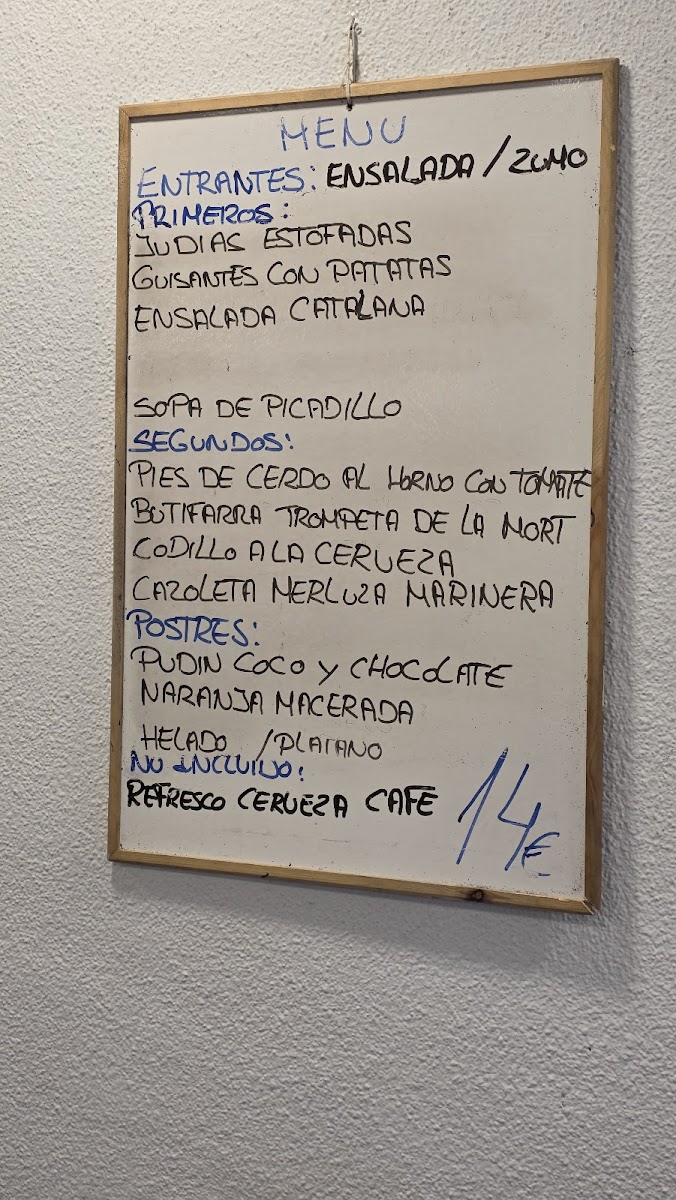 MENU
ENTRANTES: ENSALADA / ZUMO
PRIMEROS:
JUDIAS ESTOFADAS
GUISANTES CON PATATAS
ENSALADA CATALANA
SOPA DE PICADILLO
SEGUNDOS:
PIES DE CERDO AL HORNO CON TOMATE
BUTIFARRA TROMPETA DE LA MORT
CODILLO A LA CERVEZA
CAZOLETA MERLUZA MARINERA
POSTRES:
PUDIN COCO Y CHOCOLATE
NARANJA MACERADA
HELADO /PLATANO
NO INCLUIDO:
REFRESCO CERVEZA CAFE
14€